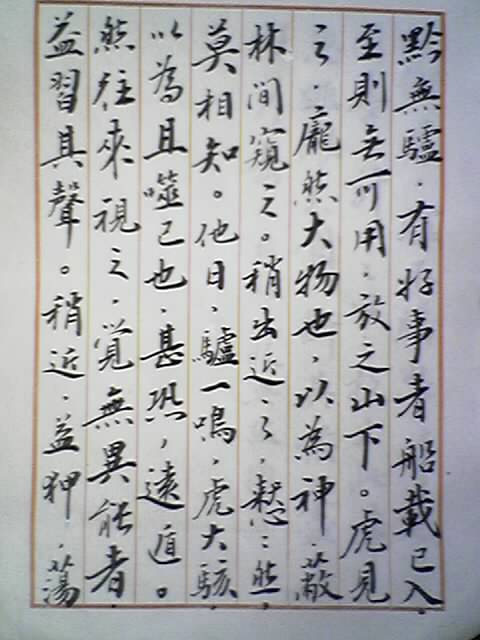 黔無驢．有好事者船載已入．
至則无可用．放之山下。虎見
之．龐然大物也，以為神．蔽
林間窺之。稍出近之，憖憖然，
莫相知。他日，驢一鳴，虎大駭
以為且噬己也．甚恐，遠遁。
然往來視之．覺無異能者．
益習其聲。稍近．益狎．蕩